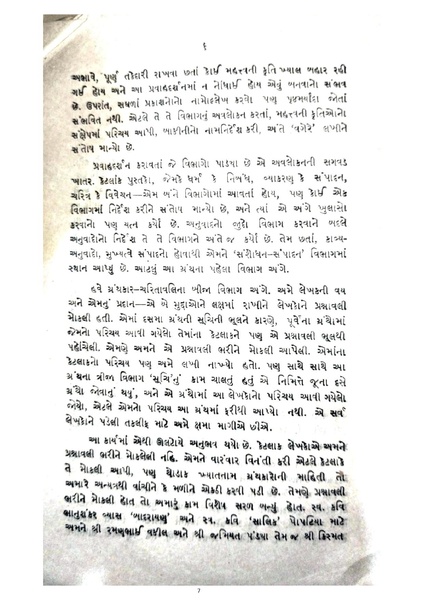 ૬
અભાવે, પૂર્ણ તકેદારી રાખવા છતાં કોઈ મહત્ત્વની કૃતિ ખ્યાલ બહાર રહી
ગઈ હોય અને આ પ્રવાહદર્શનમાં ન નોંધાઈ હોય એવું બનવાનો સંભવ
છે. ઉપરાંત, સઘળાં પ્રકાશનોનો નામોલ્લેખ કરવો પણ પૃષ્ઠમર્યાદા જોતાં
સંભવિત નથી. એટલે તે તે વિભાગનું અવલોકન કરતાં, મહત્ત્વની કૃતિઓનો
સંક્ષેપમાં પરિચય આપી, બાકીનીનો નામનિર્દેશ કરી, અંતે ‘વગેરે’ લખીને
સંતોષ માન્યો છે.
પ્રવાહદર્શન કરાવતાં જે વિભાગો પાડ્યા છે એ અવલોકનની સગવડ
ખાતર. કેટલાંક પુસ્તકો, જેમકે ધર્મ કે નિબંધ, વ્યાકરણ કે સંપાદન,
ચરિત્ર કે વિવેચન—એમ બંને વિભાગોમાં આવતાં હોય, પણ કોઈ એક
વિભાગમાં નિર્દેશ કરીને સંતોષ માન્યો છે, અને ત્યાં એ અંગે ખુલાસો
કરવાનો પણ યત્ન કર્યો છે. અનુવાદનો જુદો વિભાગ કરવાને બદલે
અનુવાદોનો નિર્દેશ તે તે વિભાગને અંતે જ કર્યો છે. તેમ છતાં, કાવ્ય-
અનુવાદો, મુખ્યત્વે સંપાદનો હોવાથી એમને ‘સંશોધન–સંપાદન’ વિભાગમાં
સ્થાન આપ્યું છે. આટલું આ ગ્રંથના પહેલા વિભાગ અંગે.
હવે ગ્રંથકાર–ચરિતાવલિના બીજા વિભાગ અંગે. અમે લેખકની વય
અને એમનું પ્રદાન—એ બે મુદ્દાઓને લક્ષમાં રાખીને લેખકોને પ્રશ્નાવલી
મોકલી હતી. એમાં દસમા ગ્રંથની સૂચિની ભૂલને કારણે, પૂર્વેના ગ્રંથોમાં
જેમનો પરિચય આવી ગયેલો તેમાંના કેટલાકને પણ એ પ્રશ્નાવલી ભૂલથી
પહોંચેલી. એમણે અમને એ પ્રશ્નાવલી ભરીને મોકલી આપેલી. એમાંના
કેટલાકનો પરિચય પણ અમે લખી નાખ્યો હતો. પણ સાથે સાથે આ
ગ્રંથના ત્રીજા વિભાગ ‘સૂચિ’નું કામ ચાલતું હતું એ નિમિત્તે જૂના દસે
ગ્રંથો જોવાનું થયું, અને એ ગ્રંથોમાં આ લેખકોનો પરિચય આવી ગયેલો
જોયો, એટલે એમનો પરિચય આ ગ્રંથમાં ફરીથી આપ્યો નથી. એ સર્વ
લેખકોને પડેલી તકલીફ માટે અમે ક્ષમા માગીએ છીએ.
આ કાર્યમાં એથી ઊલટોયે અનુભવ થયો છે. કેટલાક લેખકોએ અમને
પ્રશ્નાવલી ભરીને મોકલેલી નહિ. એમને વારંવાર વિનંતી કરી એટલે કેટલાકે
તે મોકલી આપી, પણ થોડાક ખ્યાતનામ ગ્રંથકારોની માહિતી તો
અમારે અન્યત્રથી વાંચીને કે મળીને એકઠી કરવી પડી છે. તેમણે પ્રશ્નાવલી
ભરીને મોકલી હોત તો અમારું કામ વિશેષ સરળ બન્યું હોત. સ્વ. કવિ
ભાનુશંકર વ્યાસ ‘બાદરાયણ’ અને સ્વ. કવિ ‘સાલિક’ પોપટિયા માટે
અમને શ્રી રમણભાઈ વકીલ અને શ્રી જમિયત પંડ્યા તેમ જ શ્રી કિસ્મત